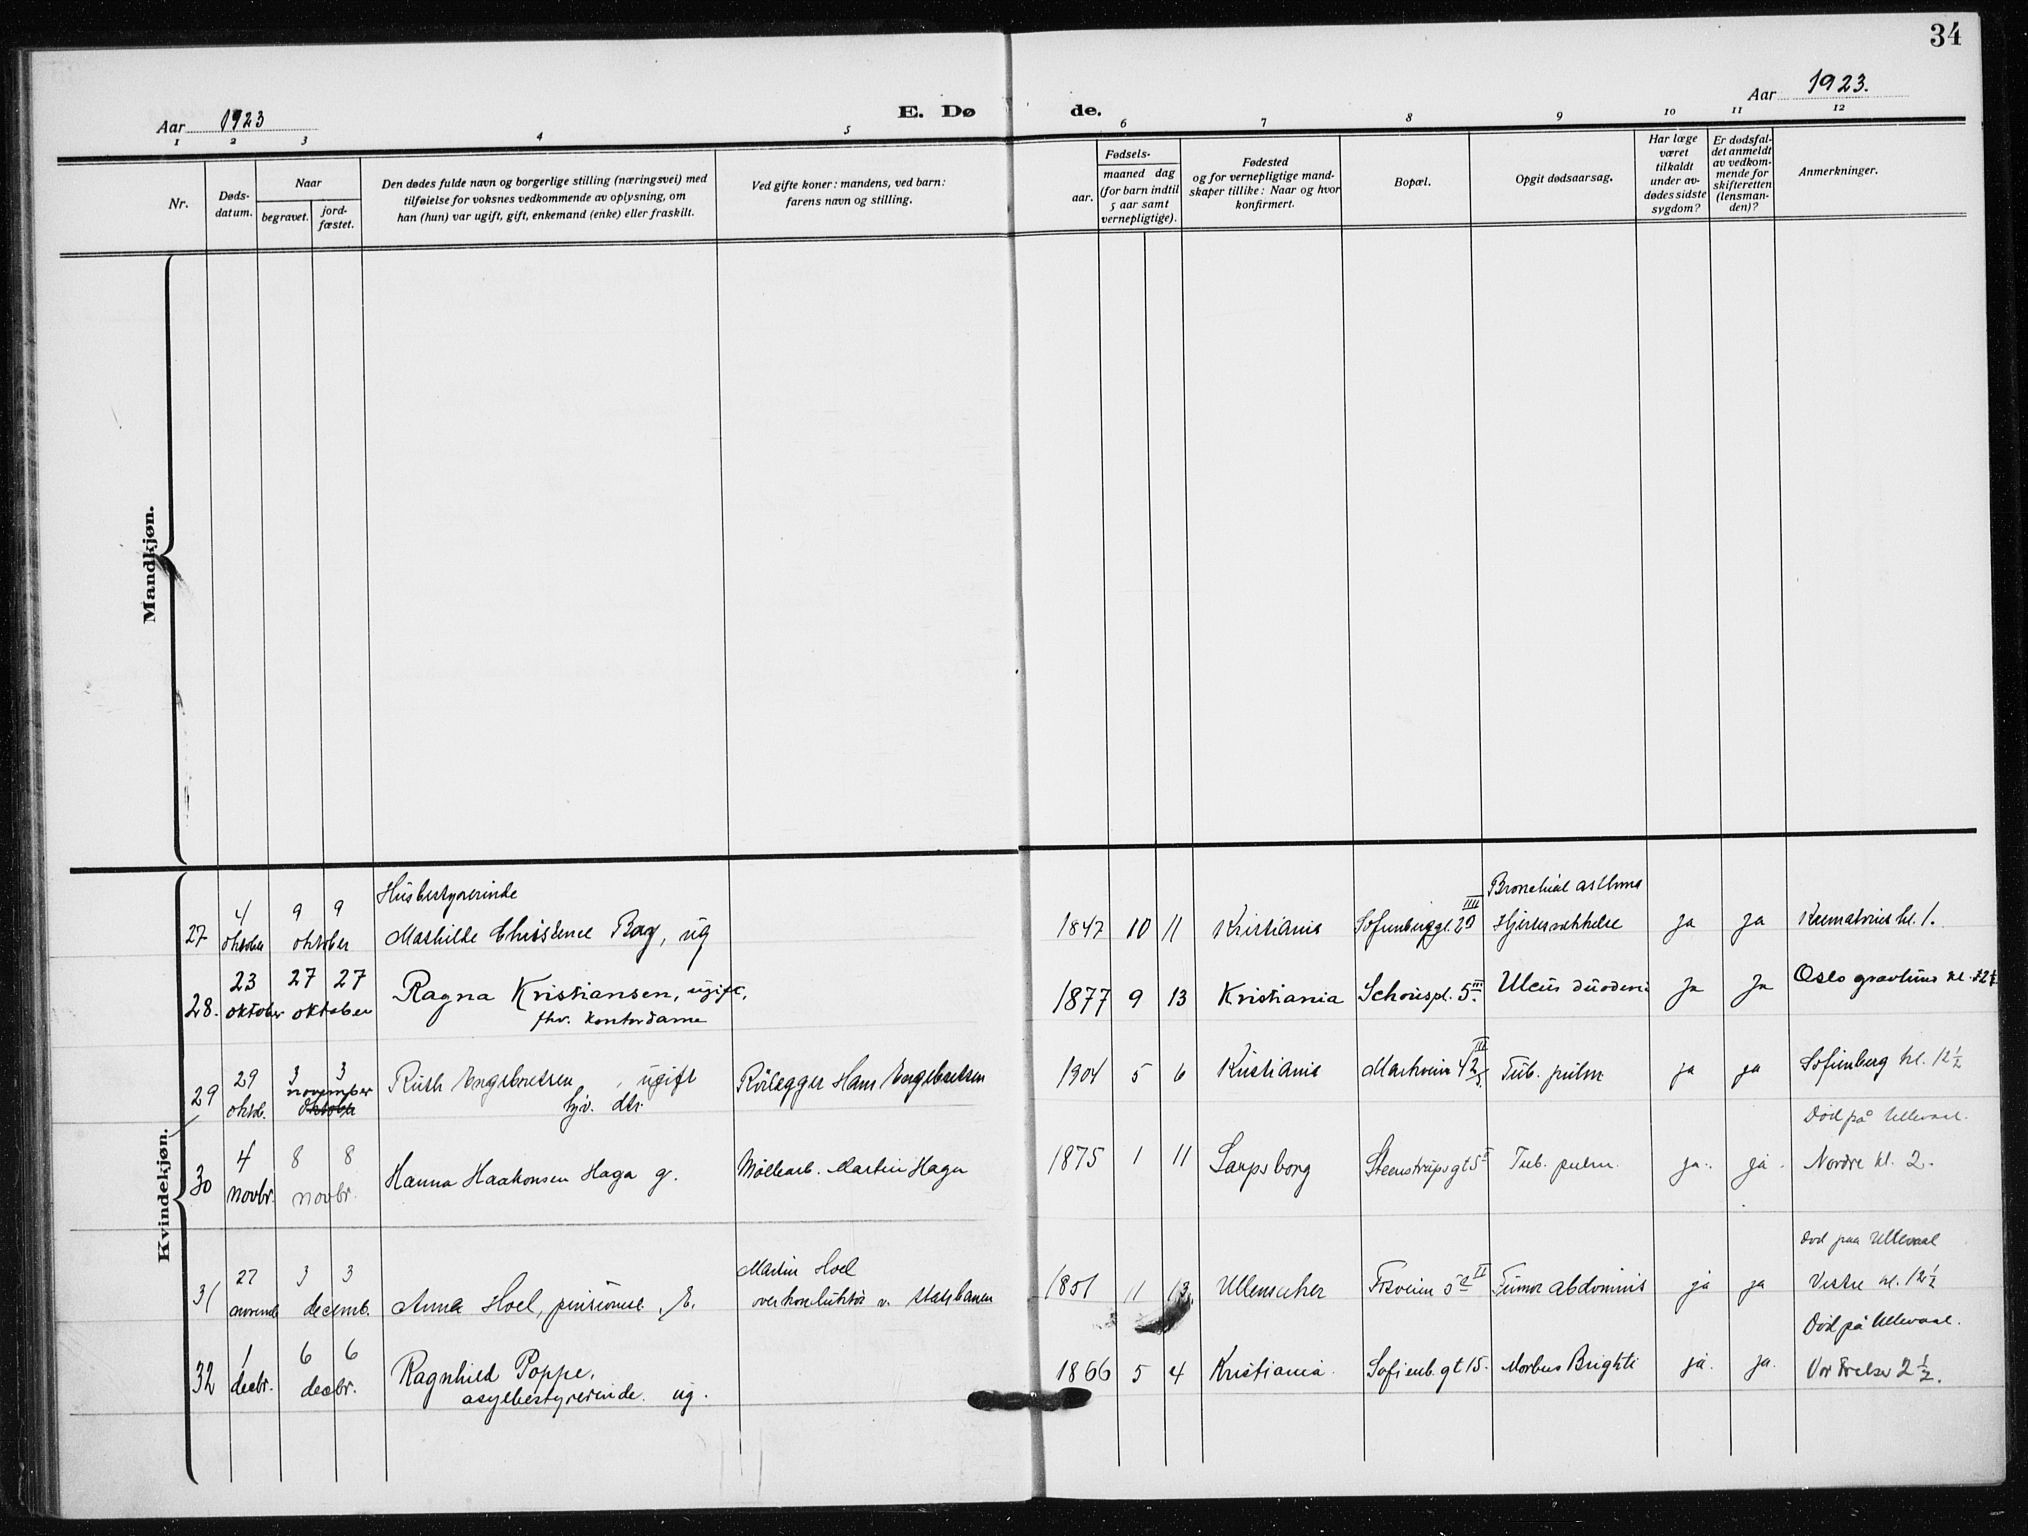 34
Aar 1923
E. Døde.
Aar 1923.
1 2 3 4 5 6 7 8 9 10 11 12
Nr.
Døds-
datum.
Naar
begravet.
jord-
fæstet.
Den dødes fulde navn og borgerlige stilling (næringsvei) med
tilføielse for voksnes vedkommende av oplysning, om
han (hun) var ugift, gift, enkemand (enke) eller fraskilt.
Ved gifte koner: mandens, ved barn:
farens navn og stilling.
Fødsels-
aar.
maaned dag
(for barn indtil
5 aar samt
vernepligtige).
Fødested
og for vernepligtige mand-
skaper tillike: Naar og hvor
konfirmert.
Bopæl.
Opgit dødsaarsag.
Har læge
været
tilkaldt
under av-
dødes sidste
sygdom?
Er dødsfal-
det anmeldt
av vedkom-
mende for
skifteretten
(lensman-
den)?
Anmerkninger.
Mandkjøn.
Kvindekjøn.
Husbestyrerinde Bronchial asthma
27 4 oktober 9 9 oktober Mathilde Christence Bay, ug 1847 10 11 Kristiania Sofienberggt. 29 III Hjertesvækkelse ja ja Krematoriet kl. 1.
28. 23 oktober 27 27 oktober Ragna Kristiansen, ugift, 1877 9 13 Kristiania Schouspl. 5 III Ulcus duodeni Ja Ja Oslo gravlund kl. 12½
fhv. kontordame
29 29 oktob. 3 3 november oktober Ruth Engebretsen, ugift Rörlegger Hans Engebretsen 1904 5 6 Kristiania Markveien 42 III Tub. pulm ja ja Sofienberg kl. 12½
hjv. dtr.
Död på Ullevaal.
30 4 novbr. 8 8 novbr. Hanna Haakonsen Haga g. Möllearb. Martin Haga 1875 1 11 Sarpsborg Steenstrupsgt 5 I Tub. pulm. ja. ja. Nordre kl. 2.
Martin Hoel Död paa Ullevaal
31 27 novemb 3 3 decemb. Anna Hoel, pensionec. E. overkonduktör v. statsbanen 1851 11 13 Ullensaker Tumor abdominis ja ja Vestre kl. 12½
Död på Ullevaal.
32 1 decbr. 6 6 decbr. Ragnhild Poppe, 1866 5 4 Kristiania. Sofienb.gt 15. Morbus Brighti ja. ja. Vor Frelser 2½.
asylbestyrerinde. ug.